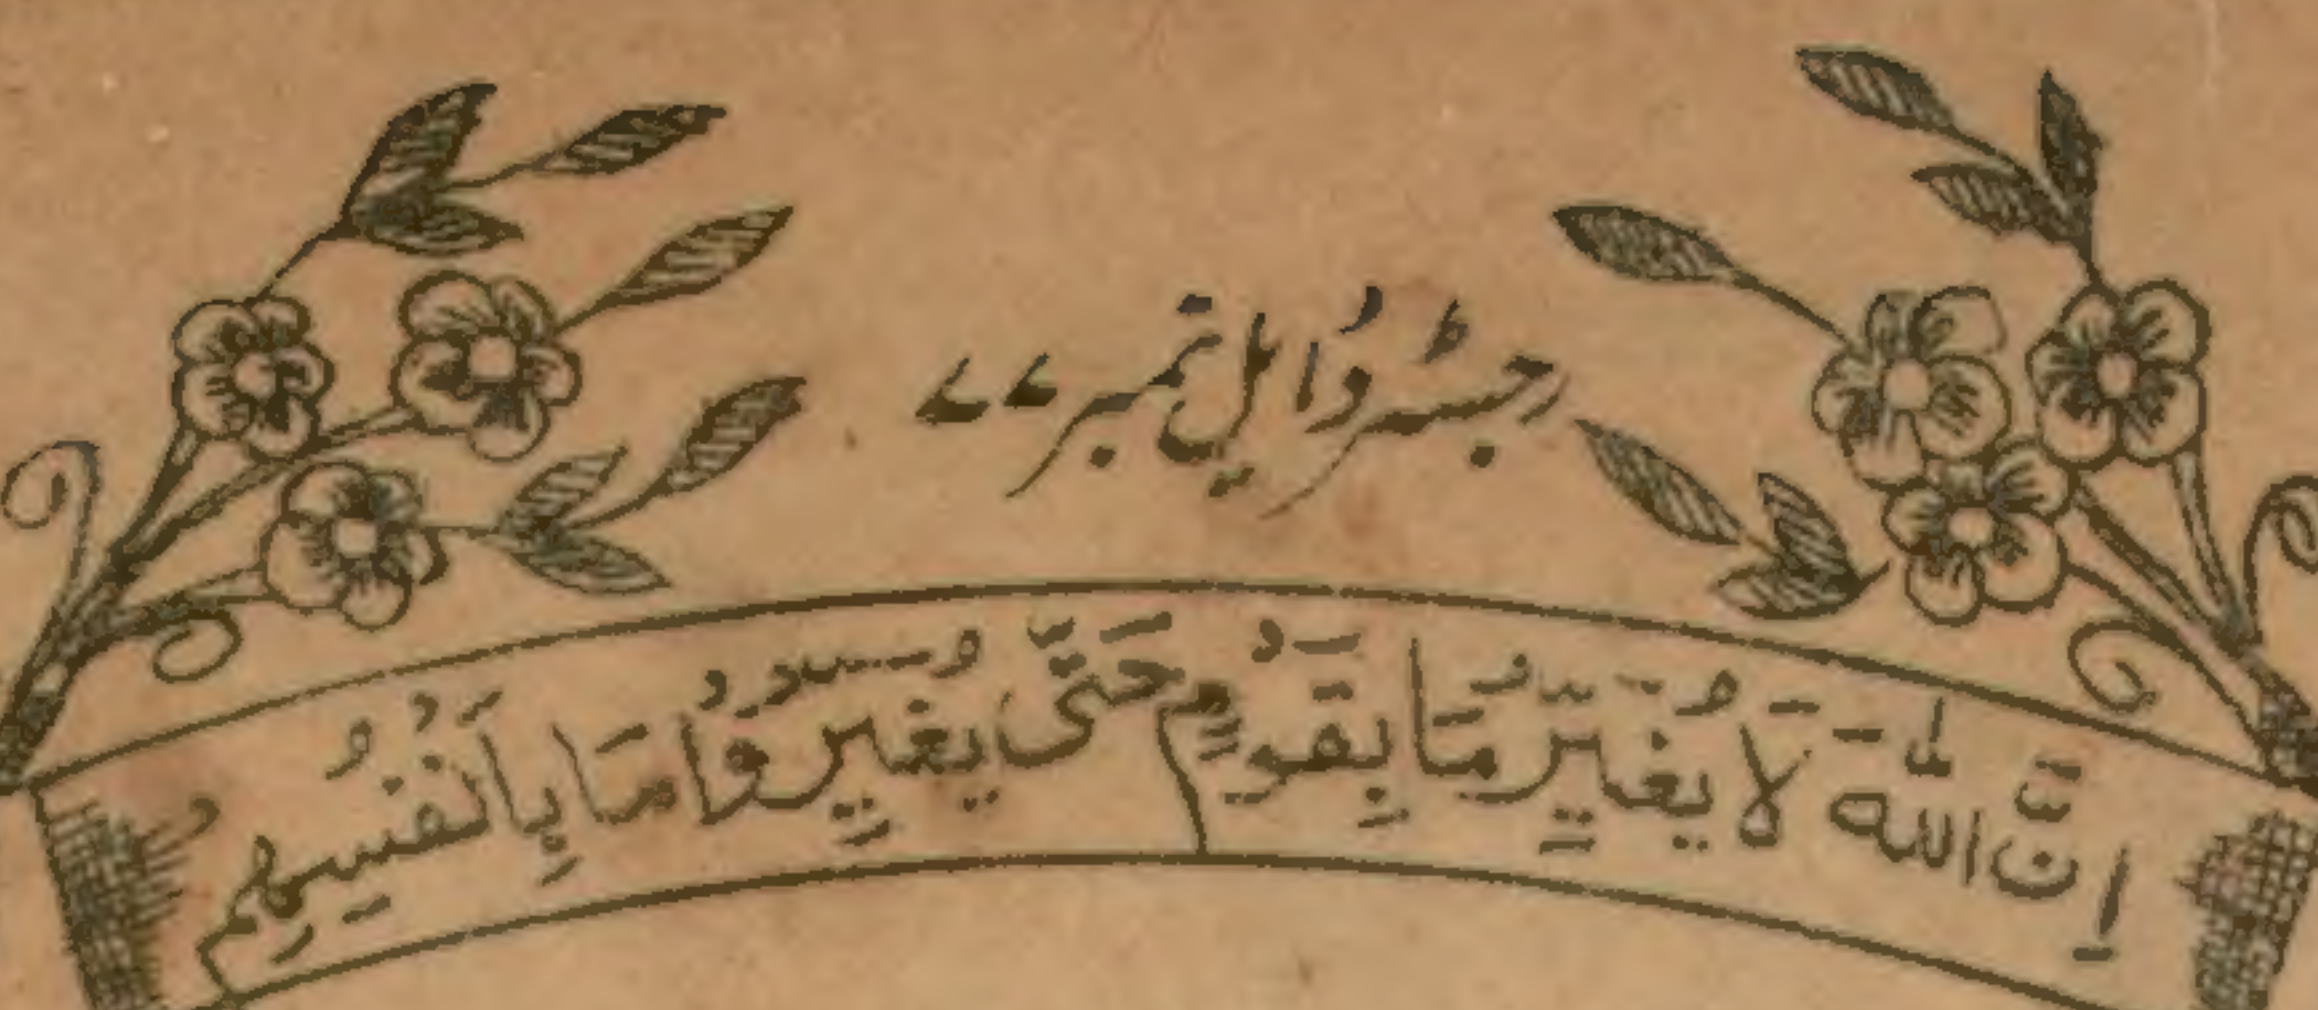 رجسٹرڈ ایل نمبر ۷۷
اِنَّ اللّٰهَ لَا يُغَيِّرُ مَا بِقَوْمٍ حَتّٰى يُغَيِّرُوْا مَا بِاَنْفُسِهِمْ